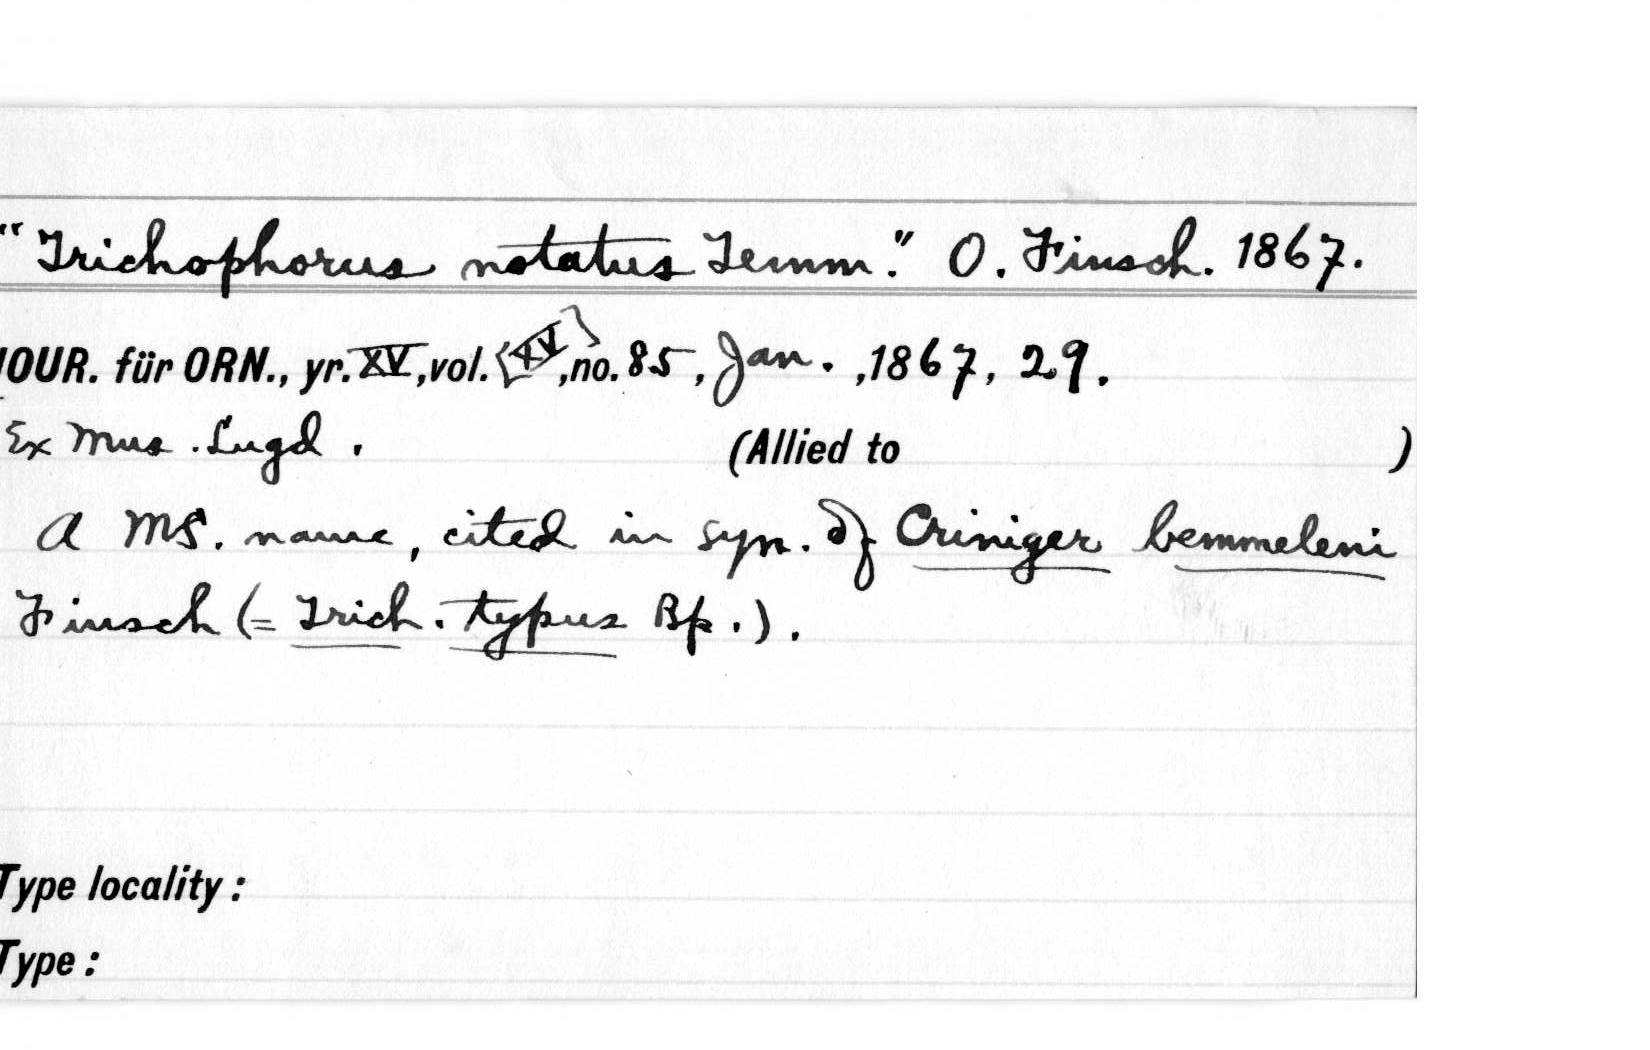 "Trichophorus notatus Temm." O. Finsch. 1867.
JOUR. für ORN., yr. XV, vol. [XV], no. 85, Jan. ,1867, 29.
Ex Mus. Lugd. (Allied to )
A MS. name, cited in syn. of Criniger bemmeleni
Finsch (= Trich. typus Bp.).
Type locality :
Type :